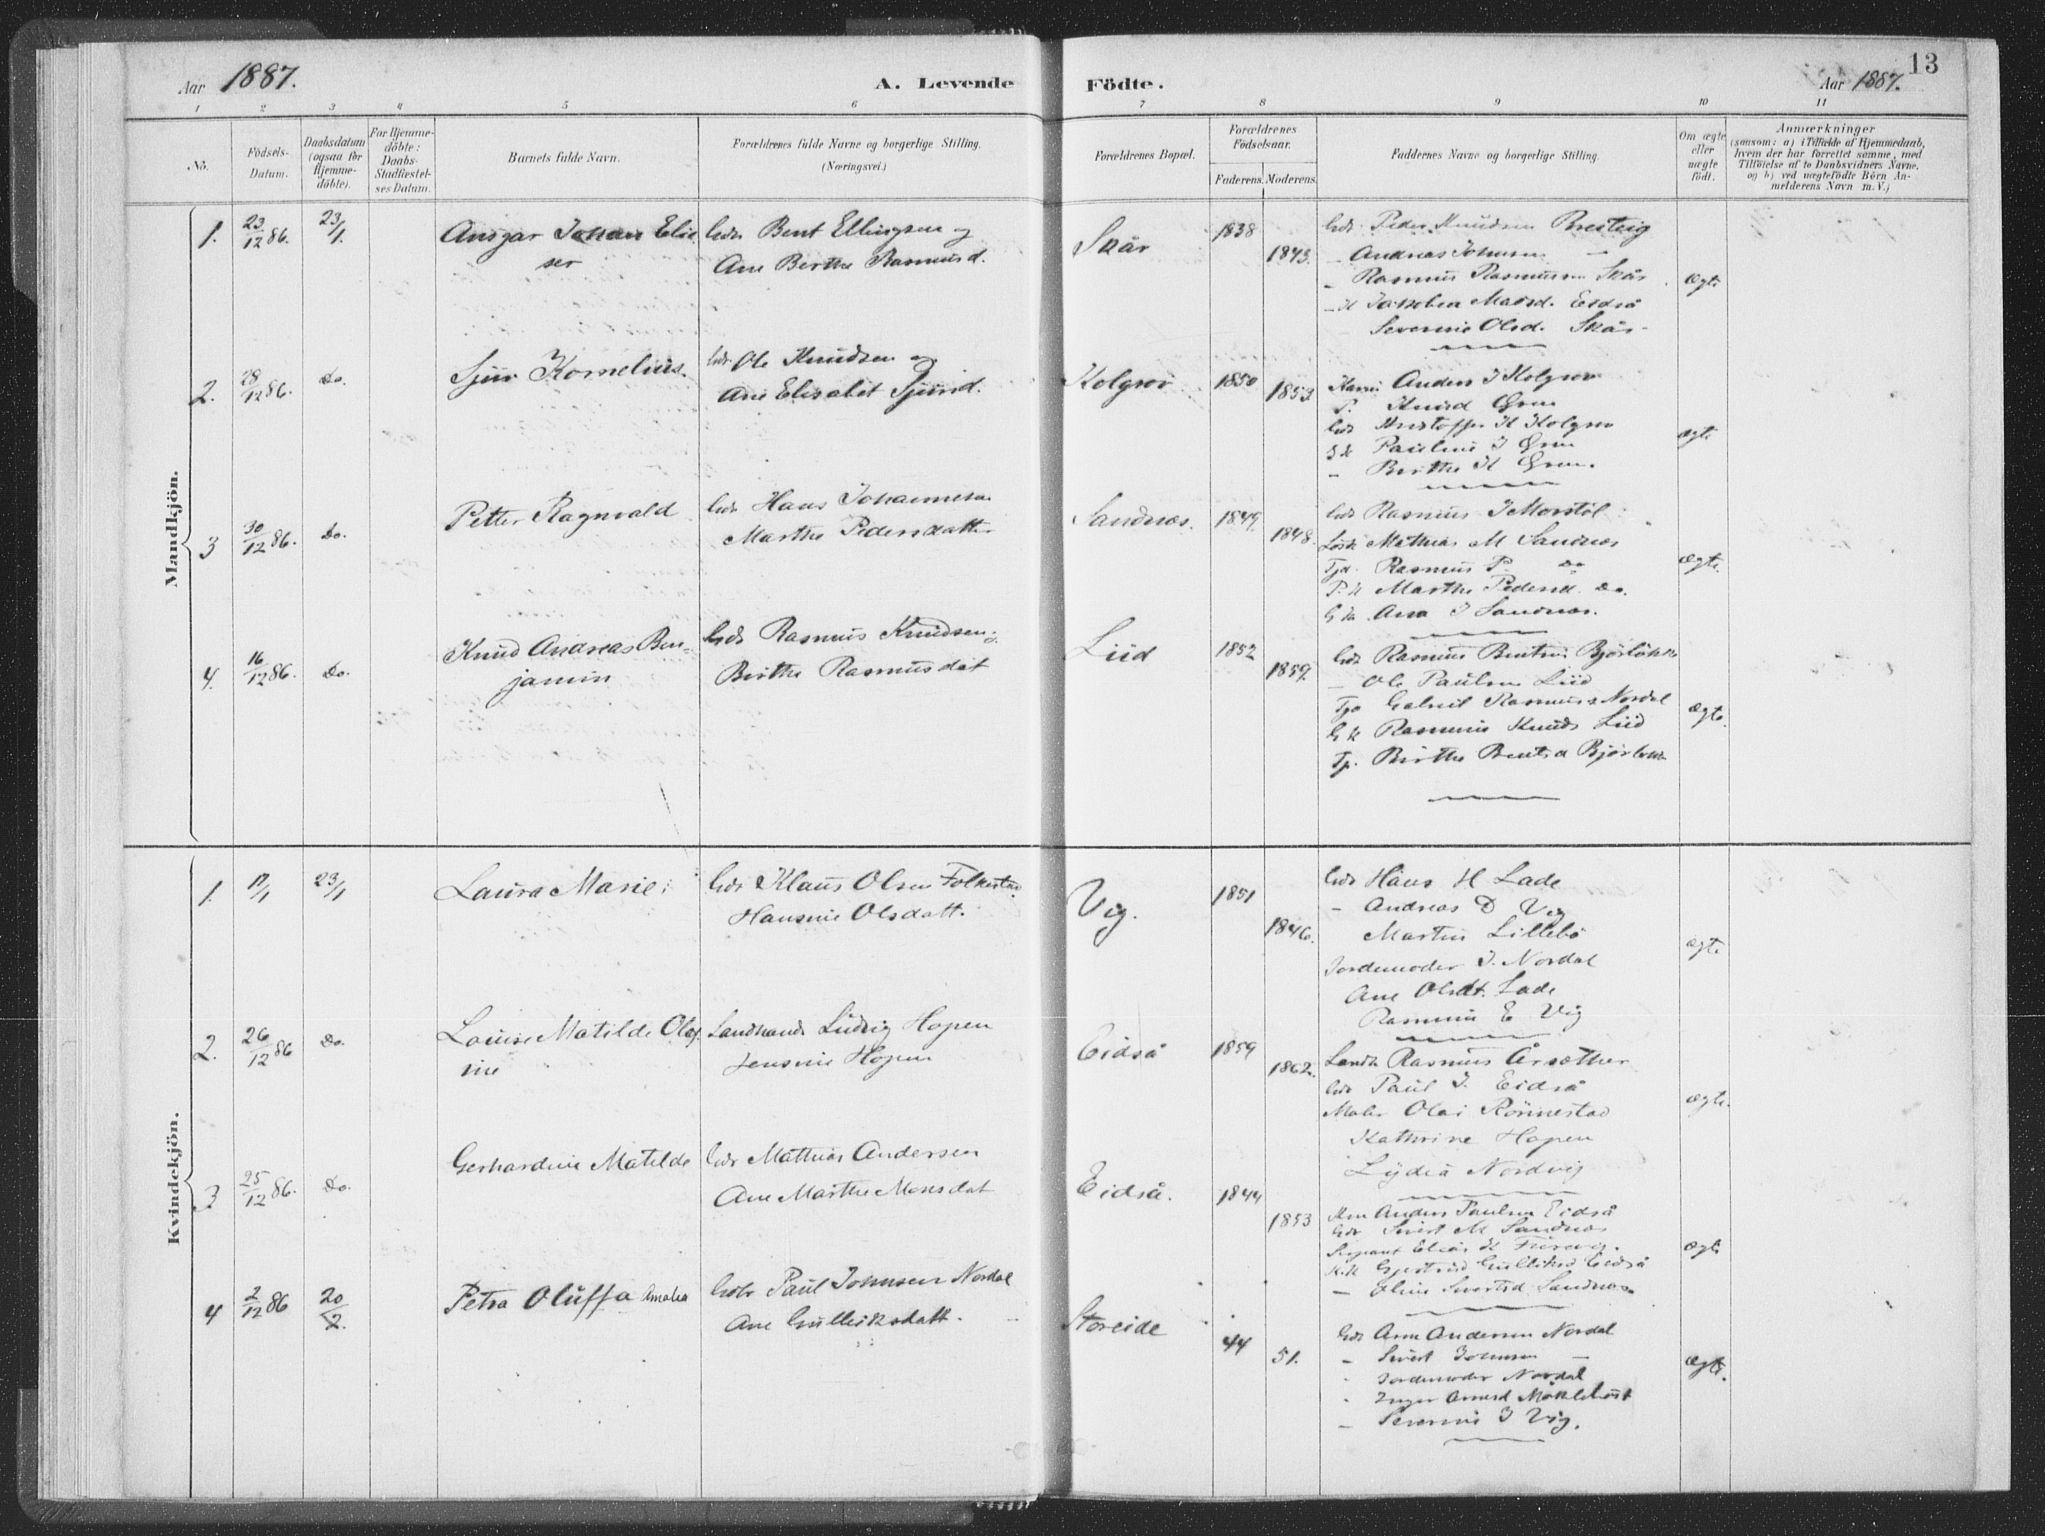 Aar 1887. A. Levende Födte. Aar 1887. 13
1 2 3 4 5 6 7 8 9 10 11
No. Födsels-Datum. Daabsdatum (ogsaa for Hjemme-döbte). For Hjemme-döbte: Daabs-Stadfæstel-ses Datum. Barnets fulde Navn. Forældrenes fulde Navne og borgerlige Stilling. (Næringsvei.) Forældrenes Bopæl. Forældrenes Födselsaar. Faderens. Moderens. Faddernes Navne og borgerlige Stilling. Om ægte eller uægte födt. Anmærkninger (saasom: a) i Tilfælde af Hjemmedaab, hvem der har forrettet samme, med Tilföielse af to Daabsvidners Navne, og b) ved uægtefödte Börn An-melderens Navn m. V.)
Mandkjön.
1. 23/12 86. 23/1. Ansgar Johan Elie
ser
Gdr Bent Ellingsen og
Ane Berthe Rasmusd.
Skår 1838 1843.
Gdr. Peder Knudsen
- Andreas Johnsen -
- Rasmus Rasmussen Skår
Jakobea Monsd. Eidså
Severine Olsd. Skår
ægte
2. 28/12 86. Do. Sjur Kornelius.
Gdr Ole Knudsen og
Ane Elisabet Sjursd.
1850 1853
Anders
P. Knud
Gdr Kristoffer K
Pauline
- Berthe K
ægte
3 30/12 86. Do. Petter Ragnvald
Gdr Hans Johannesen
Marthe Pedersdatter
Sandnæs. 1849. 1848.
Gdr Rasmus J Morstöl
Mathias M Sandnæs
Rasmus P. Do
Marthe Pedersd. Do.
Ana J Sandnæs.
ægte.
4. 16/12 86. Do. Knud Andreas Ben=
jamin
Gdr Rasmus Knudsen
Birthe Rasmusdat
Liid 1852 1859.
Gdr Rasmus Bentsen
- Ole Paulsen Liid
Gabriel Rasmussen Nordal
Rasmus Knuds Liid
Tj. Birthe Bentsd
ægte.
Kvindekjön.
1. 17/1 23/1 Laura Marie.
Gdr Klaus Olsen Folkestad
Hansine Olsdatt.
Vig. 1851 1846.
Gdr Hans H Lade
- Andreas D Vig
Martin Lillebö
Jordemoder J. Nordal
Ane Olsdt. Lade
Rasmus E Vig
ægte
2. 26/12 86 Do. Louise Matilde Olaf
ine
Landhand. Ludvig Hopen
Jensine Hopen
Eidså 1859 1862.
Landh Rasmus Årsæther
Gdr Paul J. Eidså
Maler Olai Rönnestad
Kathrine Hopen
Lydia Nordvig
ægte.
3. 25/12 86. Do. Gerhardine Matilde
Gdr Mathias Andersen
Ane Marthe Monsdat
Eidså. 1844 1853
Anders Paulsen Eidså
Gdr Sivert M Sandnæs
Sergeant Elias
Gjertrud Eidså
- Oline Sivertsd Sandnæs.
ægte
4 2/12 86 20/2. Petra Oluffa Amalia
Gdr Paul Johnsen Nordal
Ane Gulleiksdatt.
Storeide 44 51.
Gdr Arne Andersen Nordal
- Sivert Johnsen -
- Jordemoder Nordal
- Inger Arnesd
- Severine J Vig.
ægte.